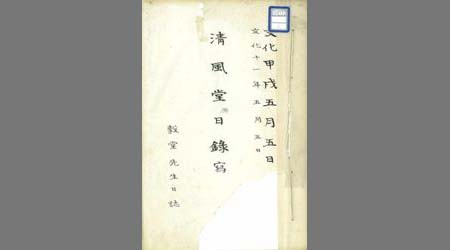 文化甲戌五月五日
文化十一年五月五日
清風堂日錄寫
穀堂先生日誌